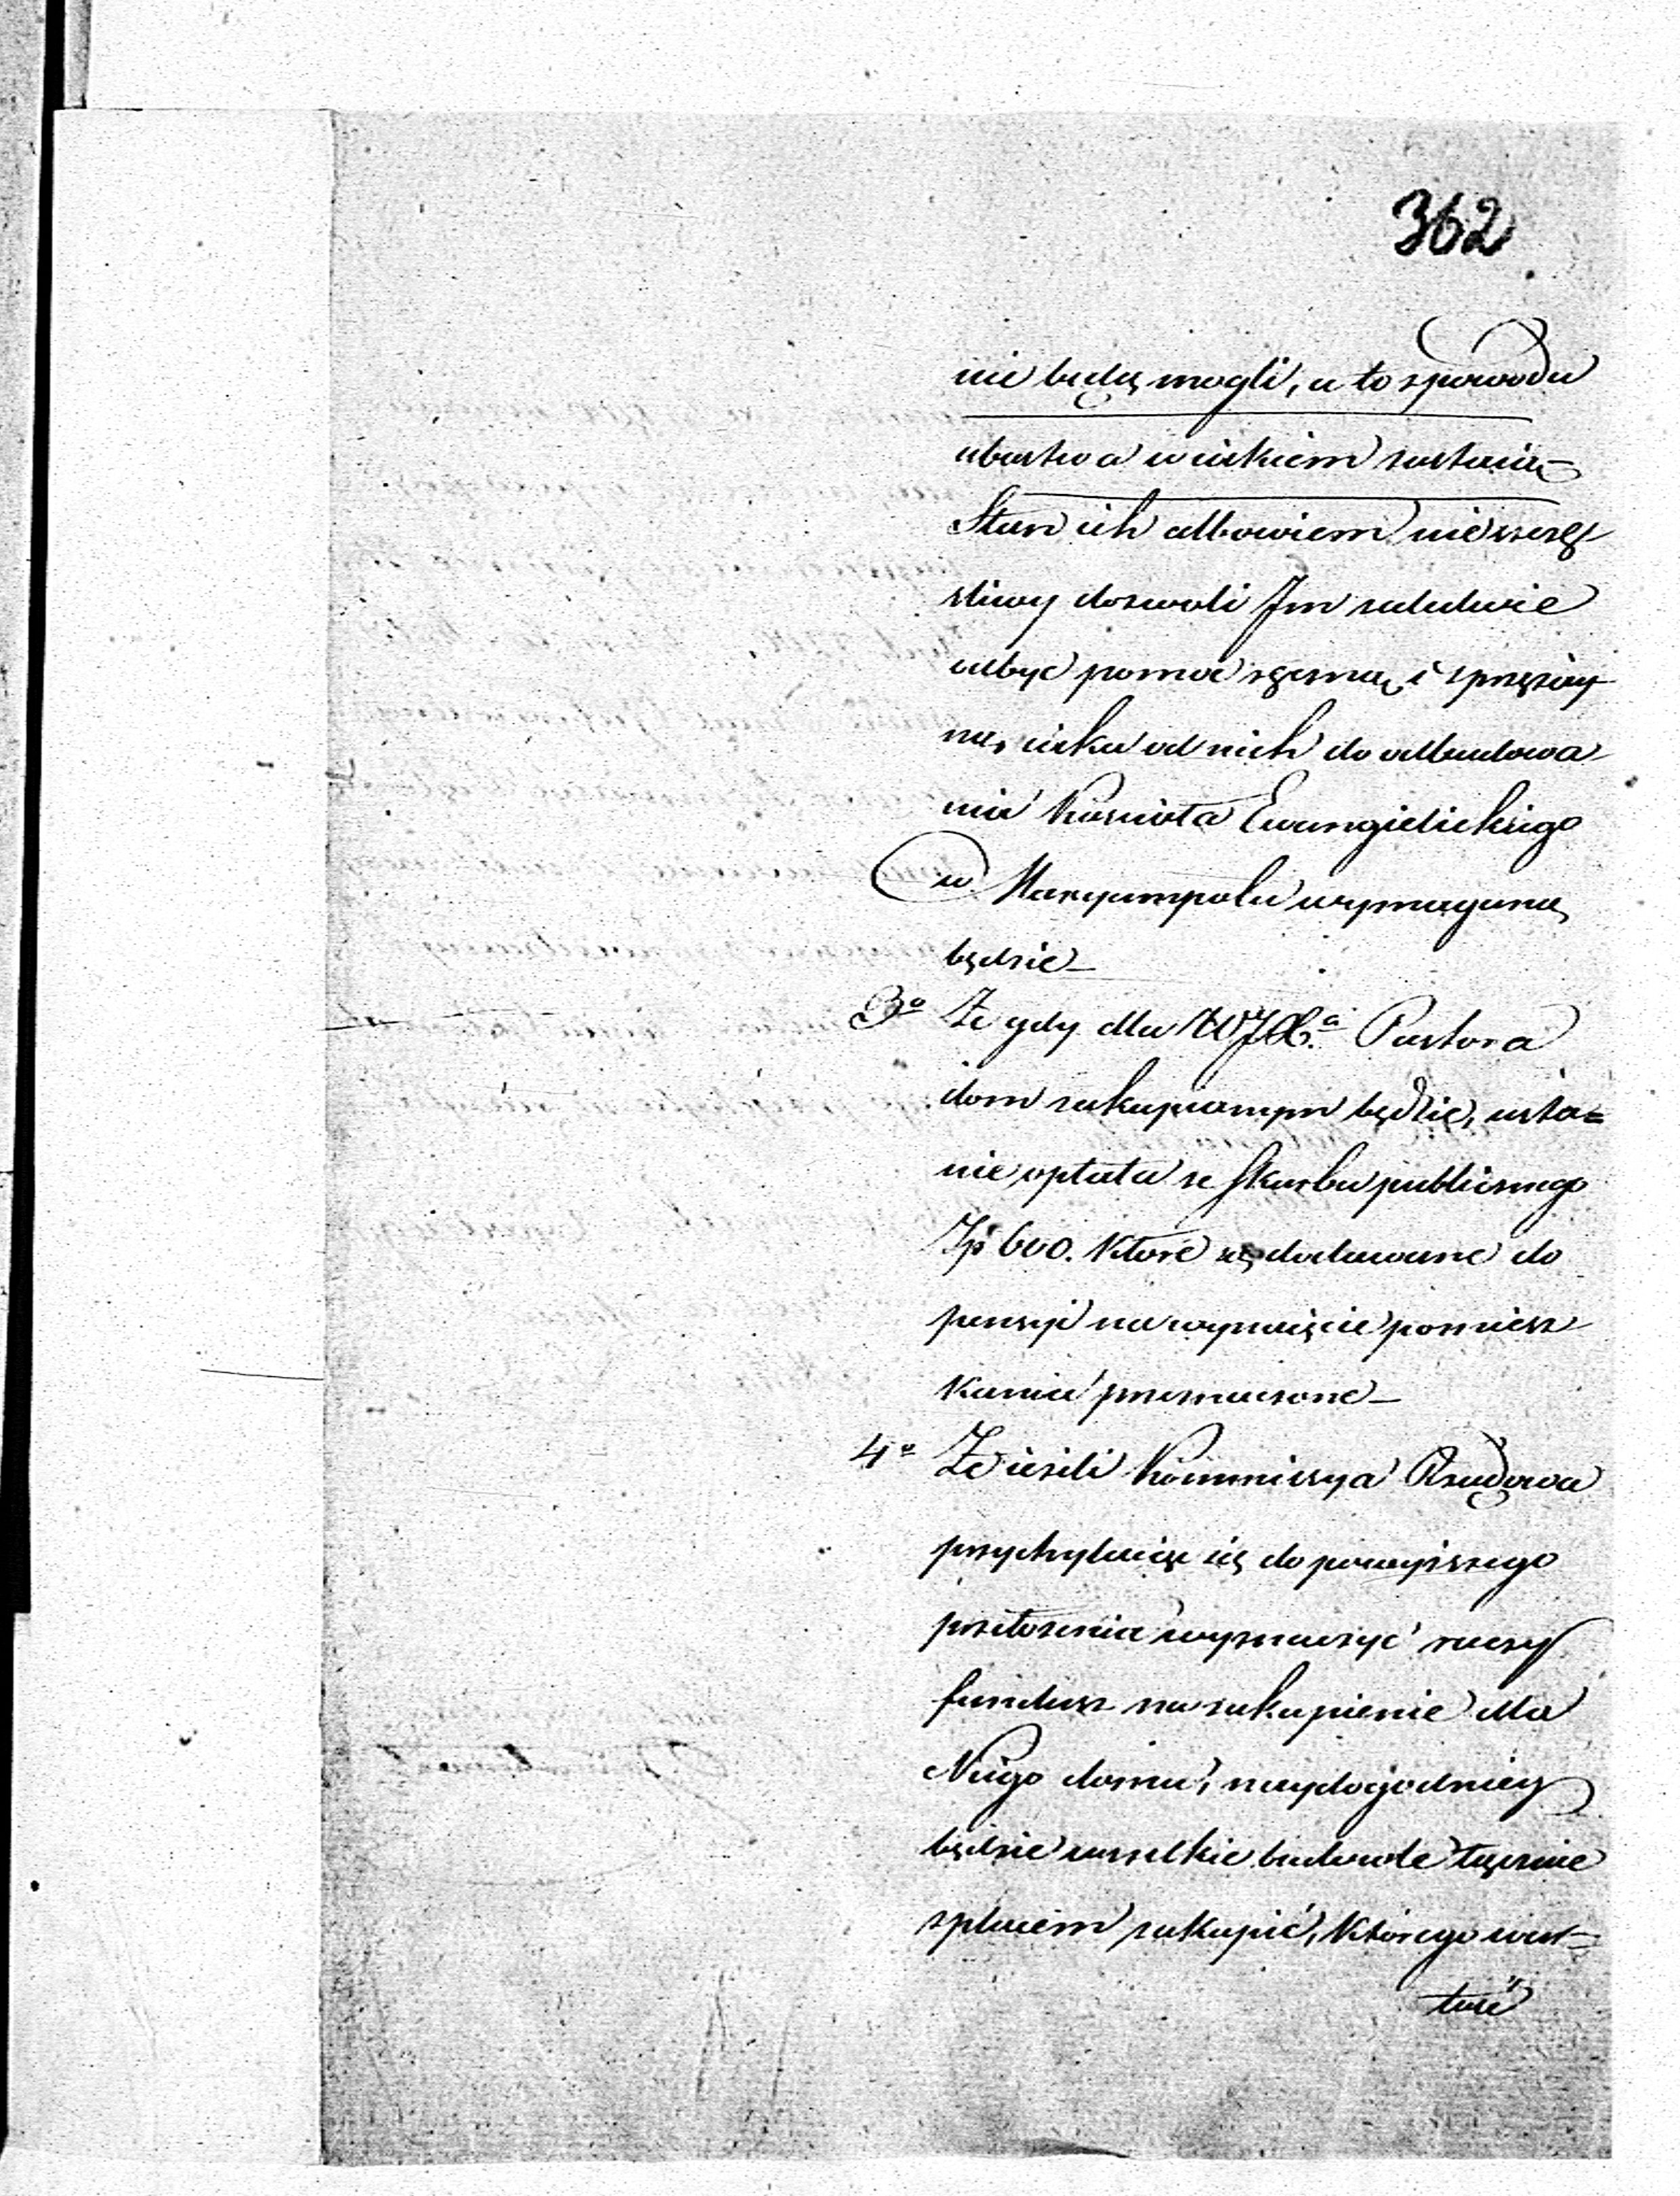 362
nie będą mogli, a to z powodu
ubóstwa w iakiem zostaią
Stan ich albowiem nieszczę
śliwy dozwoli Jm zaledwie
odbyć pomoc ręczną i sprzęży
ną, iaka od nich do odbudowa
nia Kościoła Ewangielickiego
w Maryampolu wymaganą
będzie
3o Że gdy dla WJX.a Pastora
dom zakupionym będzie, usta=
nie opłata ze Skarbu publicznego
Zp 600. które są dodawane do
pensyi na wynaięcie pomiesz
kania przeznaczone
4o Że ieżeli Kommissya Rządowa
przychylaiąc się do powyższego
przełożenia wyznaczyć raczy
fundusz na zakupienie dla
Niego domu, naydogodniey
będzie wszelkie budowle łącznie
z placem zakupić, którego war=
tość